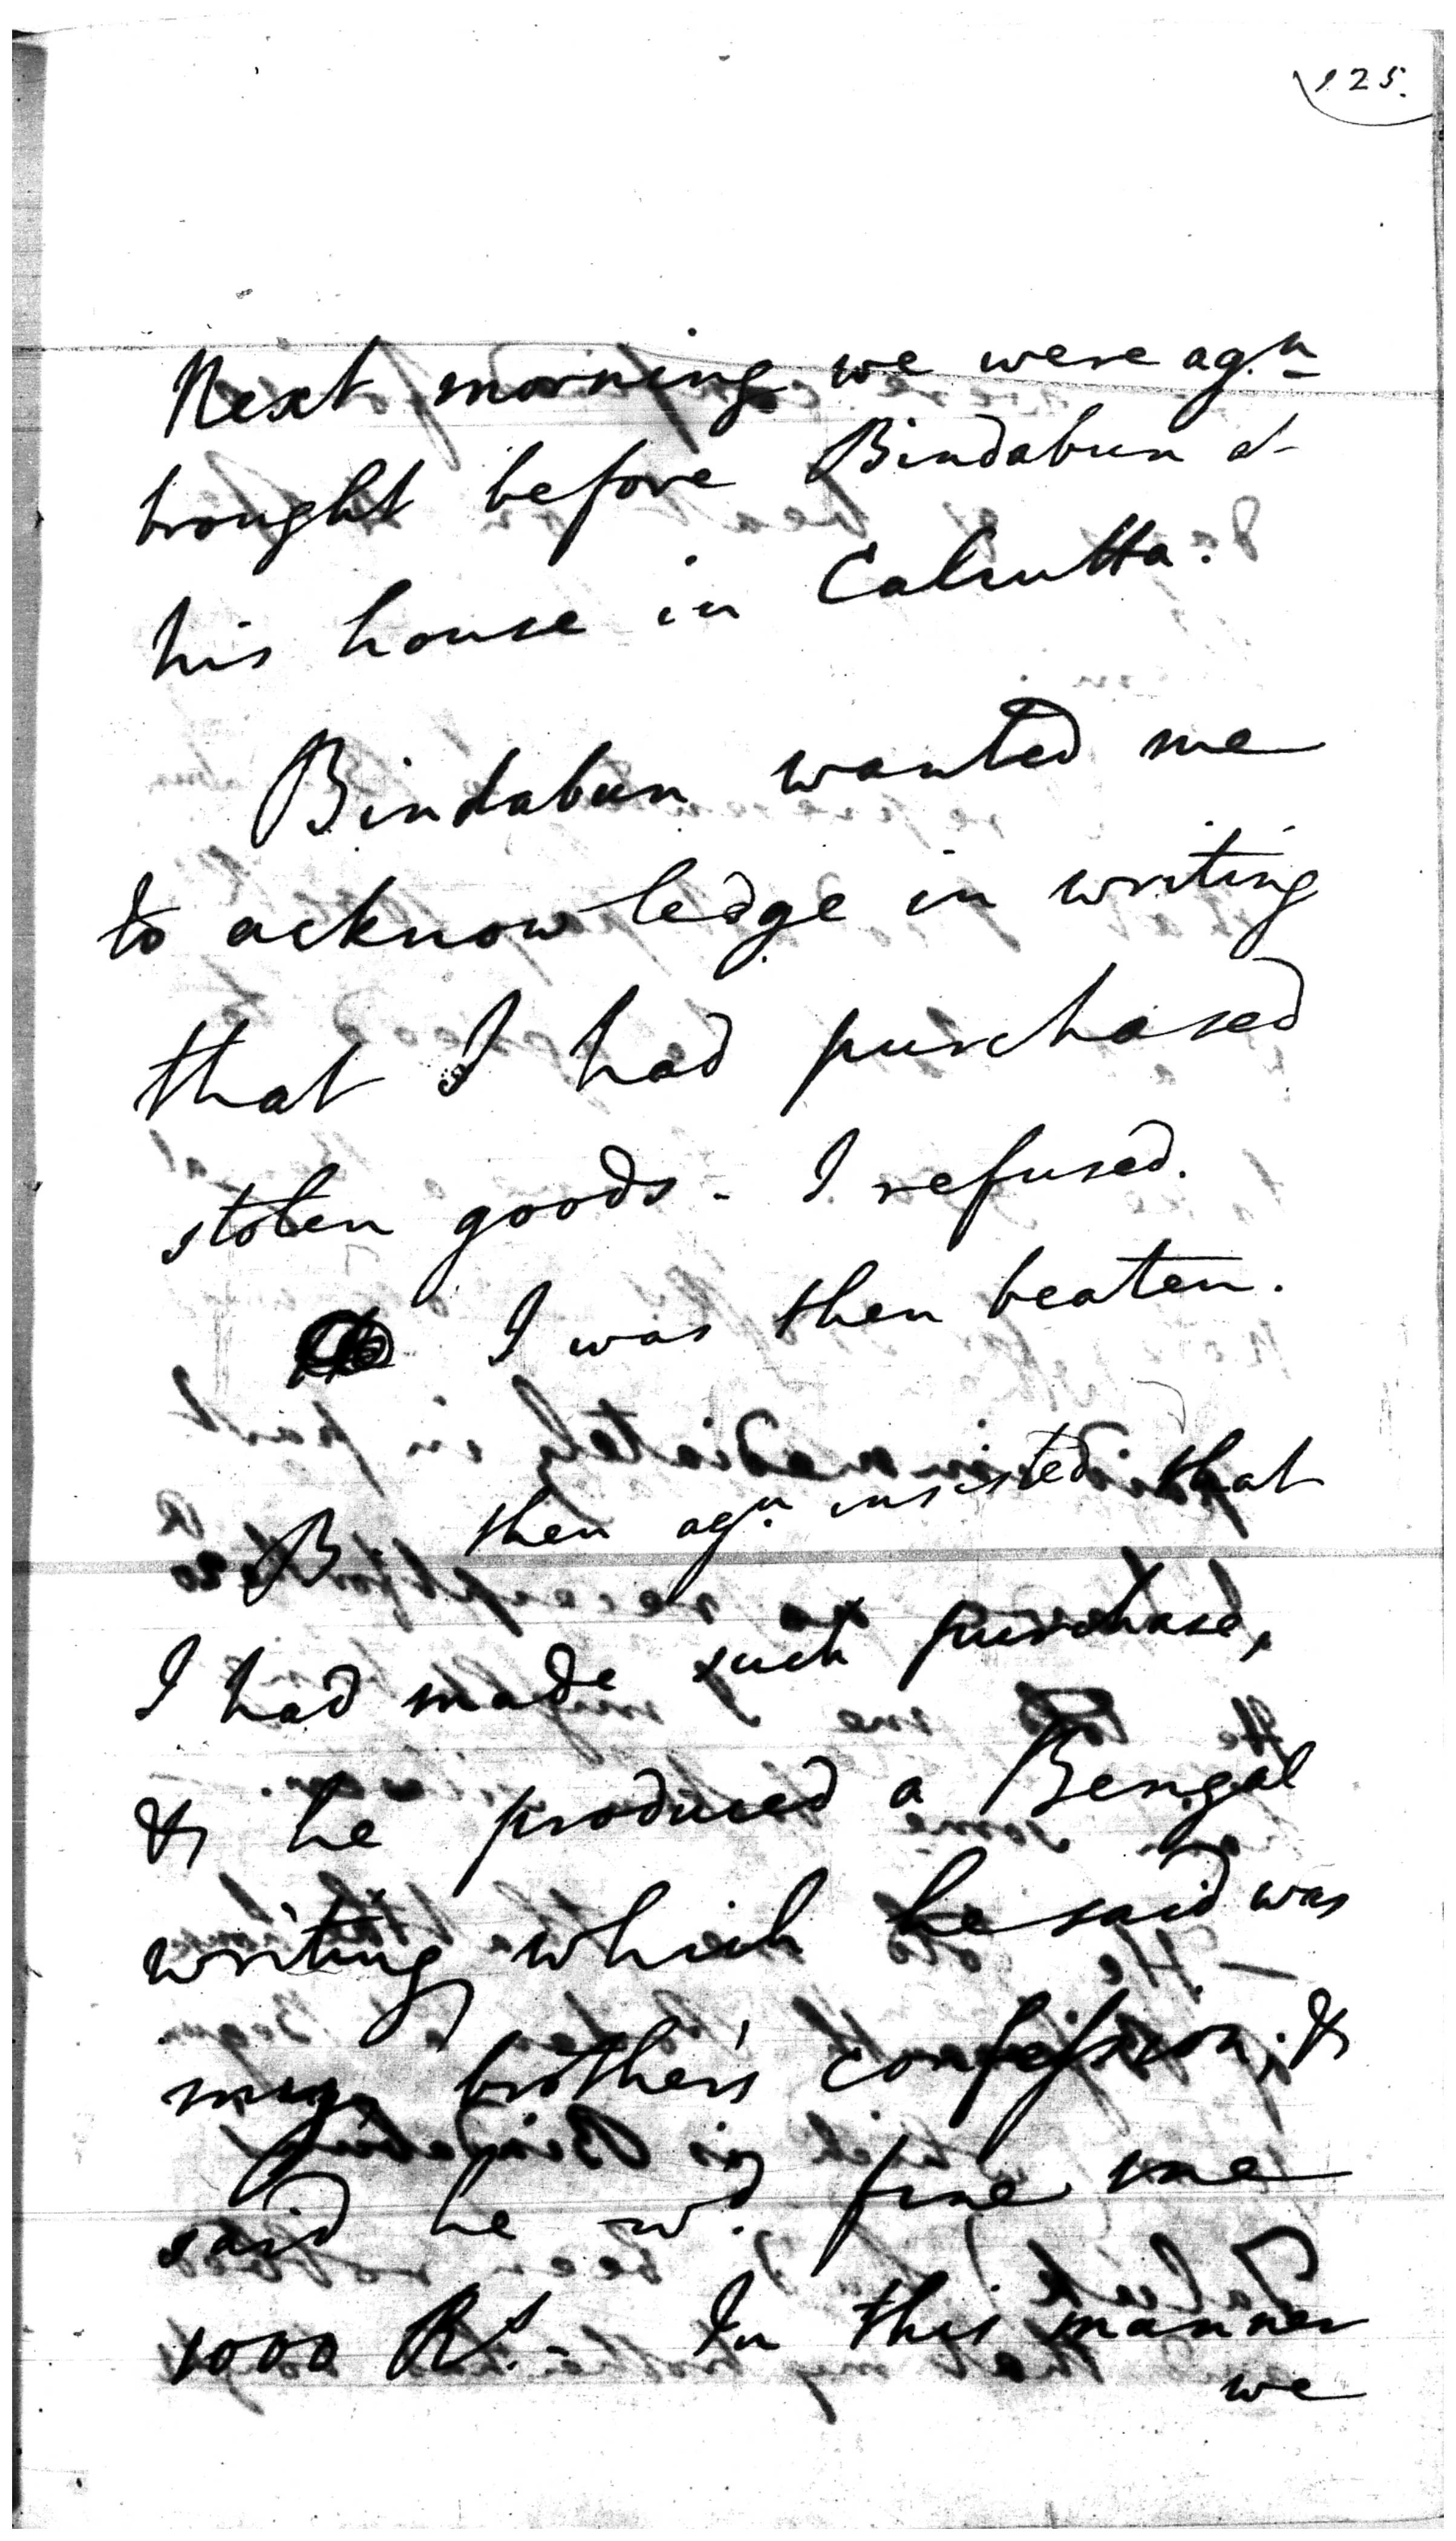 125.
Next morning we were agn
brought before Bindabun at
his house in Calcutta.
Bindabun wanted me
to acknowledge in writing
that I had purchased
stolen goods - I refused.
I was then beaten.
B. then agn insisted that
I had made such purchase,
& he produced a Bengal
writing which he said was
my brother's confession, &
said he wd. fine me
1000 Rs. - In this manner
we